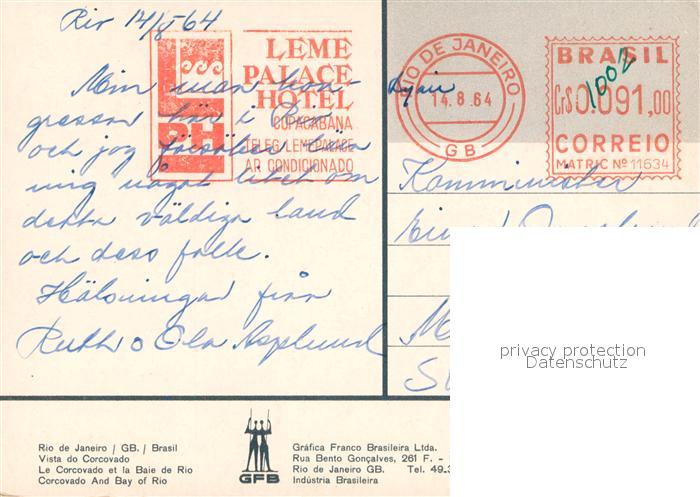 Rio 14/8 64
Min man kon-
gressar här i Rio
och jag försöker lära
mig något litet om
detta väldiga land
och dess folk.
Hälsningar från
Ruth o Ola Asplund
LEME
PALACE
HOTEL
COPACABANA
TELEG. LEMEPALACE
AR CONDICIONADO
RIO DE JANEIRO
14.8.64
GB
BRASIL
1002
CR$ 0.091,00
CORREIO
MATRIC Nº 11634
Kommminister
privacy protection
Datenschutz
Rio de Janeiro / GB. / Brasil
Vista do Corcovado
Le Corcovado et la Baie de Rio
Corcovado And Bay of Rio
GFB
Gráfica Franco Brasileira Ltda.
Rua Bento Gonçalves, 261 F. -
Rio de Janeiro GB. Tel. 49.3
Indústria Brasileira